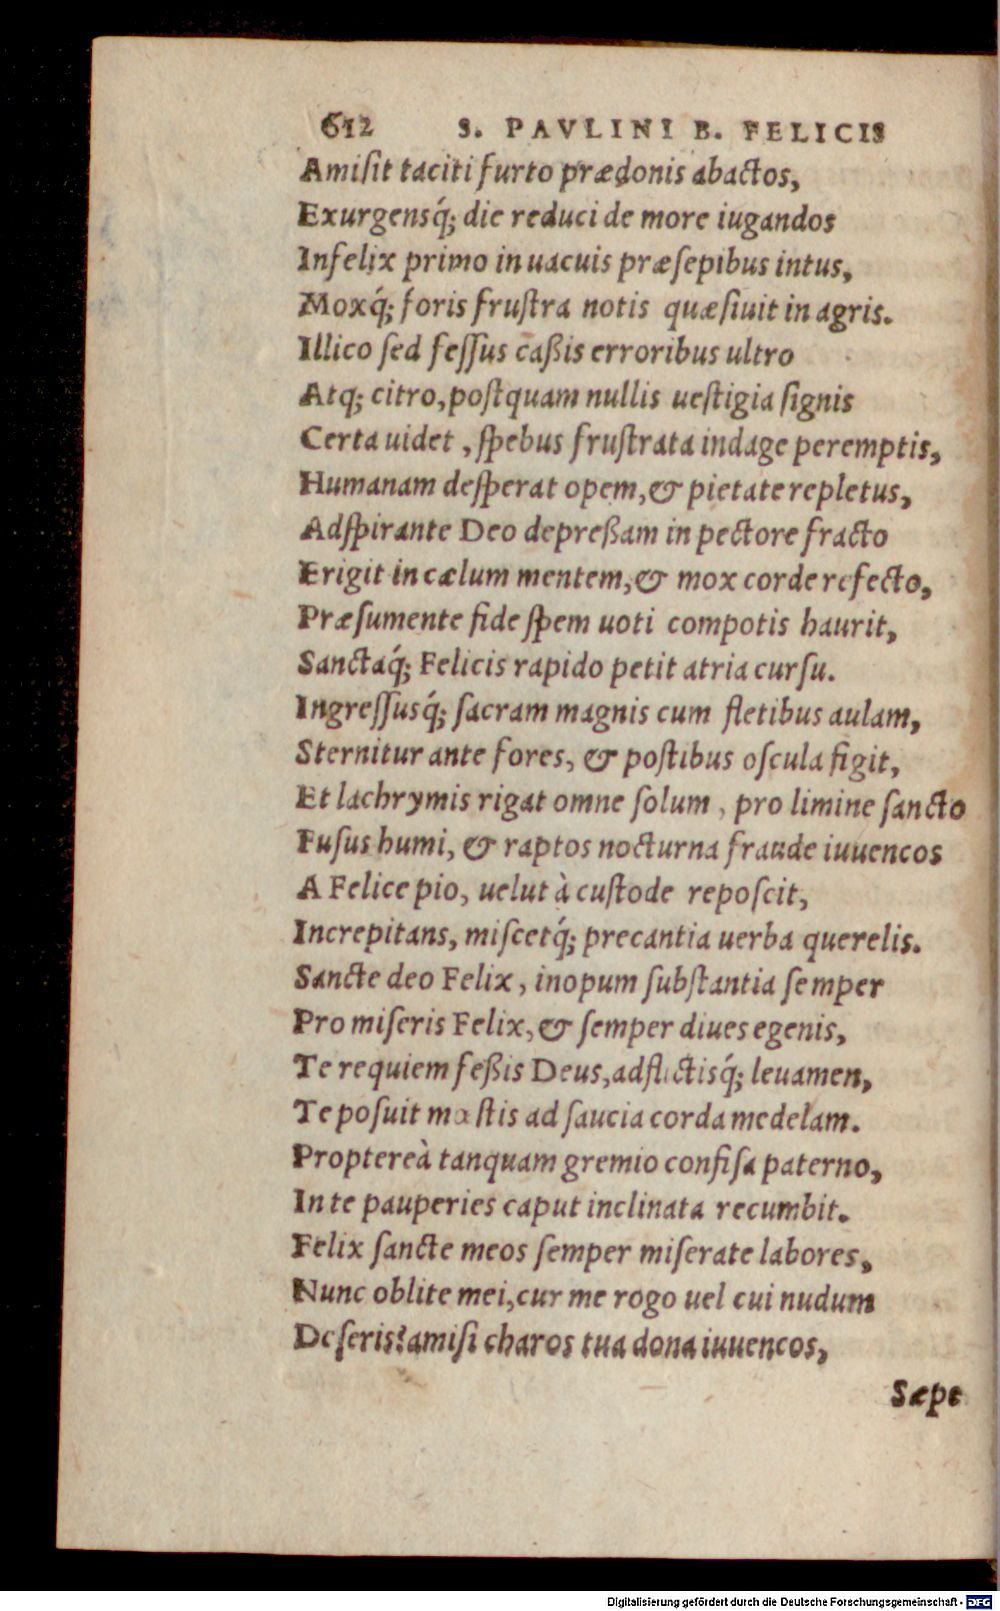 612 S. PAVLINI B. FELICIS
Amiſit taciti furto prædonis abactos,
Exurgensq́; die reduci de more iugandos
Infelix primo in uacuis præſepibus intus,
Moxq́; foris fruſtra notis quæſiuit in agris.
Illico ſed feſſus caßis erroribus ultro
Atq; citro, poſtquam nullis ueſtigia ſignis
Certa uidet, ſpebus fruſtrata indage peremptis,
Humanam deſperat opem, & pietate repletus,
Adſpirante Deo depreßam in pectore fracto
Erigit in cælum mentem, & mox corde refecto,
Præſumente fide ſpem uoti compotis haurit,
Sanctaq́; Felicis rapido petit atria curſu.
Ingreſſusq́; ſacram magnis cum fletibus aulam,
Sternitur ante fores, & poſtibus oſcula figit,
Et lachrymis rigat omne ſolum, pro limine ſancto
Fuſus humi, & raptos nocturna fraude iuuencos
A Felice pio, uelut à cuſtode repoſcit,
Increpitans, miſcetq́; precantia uerba querelis.
Sancte deo Felix, inopum ſubſtantia ſemper
Pro miſeris Felix, & ſemper diues egenis,
Te requiem feßis Deus, adflictisq́; leuamen,
Te poſuit mœſtis ad ſaucia corda medelam.
Proptereà tanquam gremio confiſa paterno,
In te pauperies caput inclinata recumbit.
Felix ſancte meos ſemper miſerate labores,
Nunc oblite mei, cur me rogo uel cui nudum
Deſeris? amiſi charos tua dona iuuencos,
Sæpe
Digitalisierung gefördert durch die Deutsche Forschungsgemeinschaft - DFG